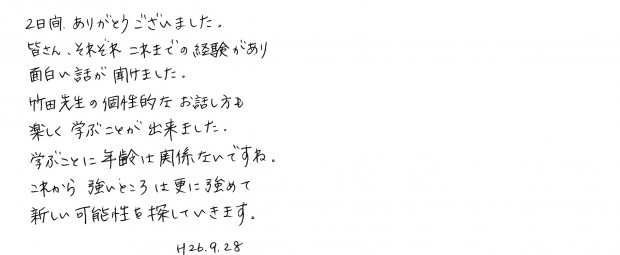 2日間、ありがとうございました。
皆さん、それぞれ これまでの経験があり
面白い話が 聞けました。
竹田先生の個性的な お話し方も
楽しく 学ぶことが 出来ました。
学ぶことに 年齢は 関係ないですね。
これから 強いところは 更に 強めて
新しい可能性を探していきます。
H26.9.28